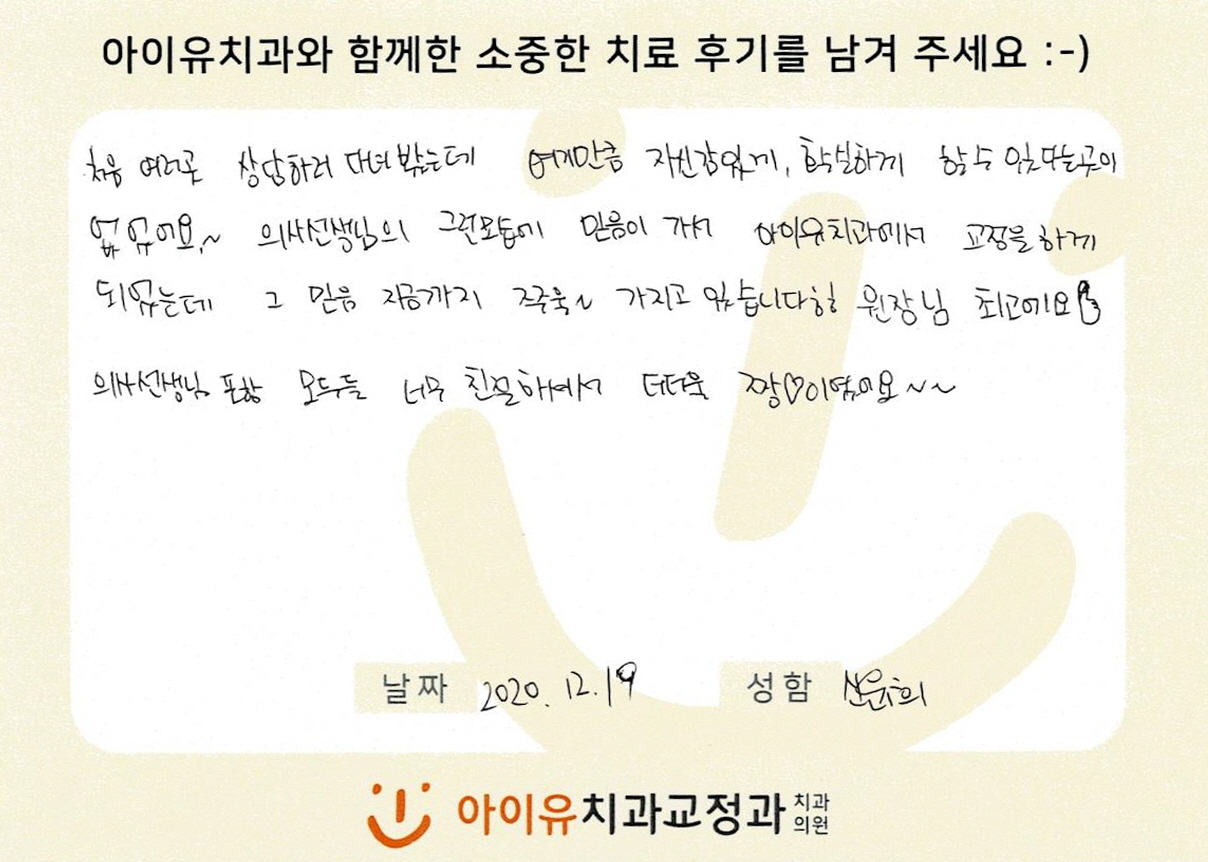 아이유치과와 함께한 소중한 치료 후기를 남겨 주세요 :-)
처음 여러곳 상담하러 다녀봤는데 여기만큼 자신감있게, 확실하게 할 수 있다는곳이
없었어요,~ 의사선생님의 그런모습에 믿음이 가서 아이유치과에서 교정을하게
되었는데 그 믿음 지금까지 주욱~ 가지고 있습니다하핳 원장님 최고에요
의사선생님 포함 모두들 너무 친절하셔서 더더욱 짱♡이었어요~~
날짜 2020. 12. 19 성함
아이유치과교정과 치과의원